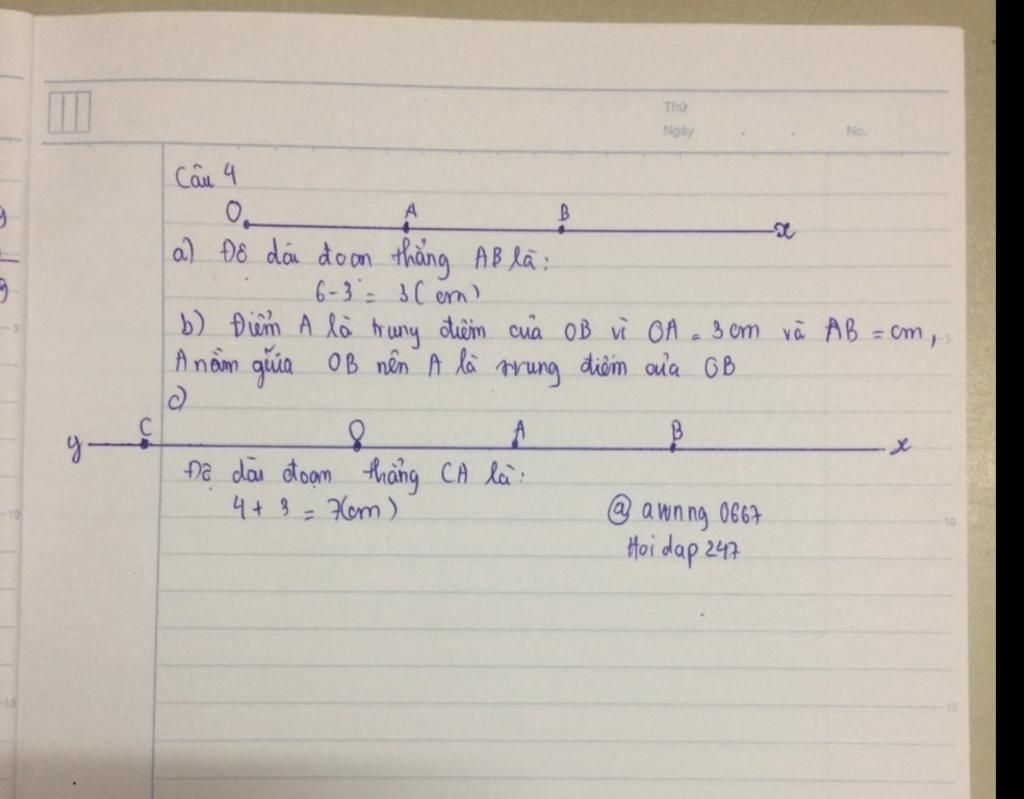 Thứ
Ngày . . No.
Câu 4
O A B x
a) Độ dái đoan thẳng AB là:
6-3 = 3(cm)
b) Điểm A là trung điểm của OB vì OA = 3cm và AB = cm,
A nằm giữa OB nên A là trung điểm của OB
c)
y C O A B x
Độ dài đoạn thẳng CA là:
4 + 3 = 7(cm)
@ awnng 0667
Hoi dap 247
5
10
15